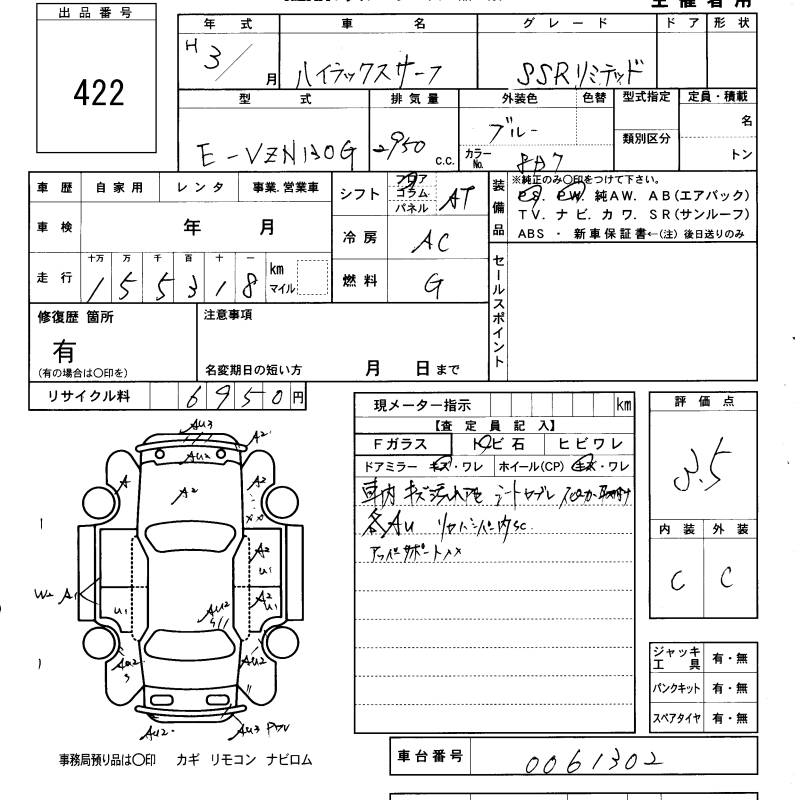 主催者用
出品番号
422
年式 車名 グレード ドア 形状
H 3/ 月 ハイラックスサーフ SSRリミテッド
型式 排気量 外装色 色替 型式指定 定員・積載
E-VZN130G 2950 c.c. ブルー 類別区分 名
カラーNo. 8D7 トン
車歴 自家用 レンタ 事業.営業車
シフト フロア コラム パネル AT
装備品 ※純正のみ○印をつけて下さい。
PS. PW. 純AW. AB(エアバック)
TV. ナビ. カワ. SR(サンルーフ)
ABS ・ 新車保証書←(注)後日送りのみ
車検 年 月
冷房 AC
走行 十万 万 千 百 十 一
155318 km マイル
燃料 G
セールスポイント
修復歴 箇所
有
(有の場合は○印を)
注意事項
名変期日の短い方 月 日まで
リサイクル料 6950円
現メーター指示 km
【査定員記入】
Fガラス トビ石 ヒビワレ
ドアミラー キズ・ワレ ホイール(CP) キズ・ワレ
車内 キズ汚れ
各AU
アッパーサポート××
評価点
3.5
内装 外装
C C
AU3
A2
AU2
A2
A
A2
××
A2
U1
W2 A1
U1
AU2
A2
U1
AU2
3
AU2
AU2
AU3
ジャッキ工具 有・無
パンクキット 有・無
スペアタイヤ 有・無
事務局預り品は○印 カギ リモコン ナビロム
車台番号 0061302